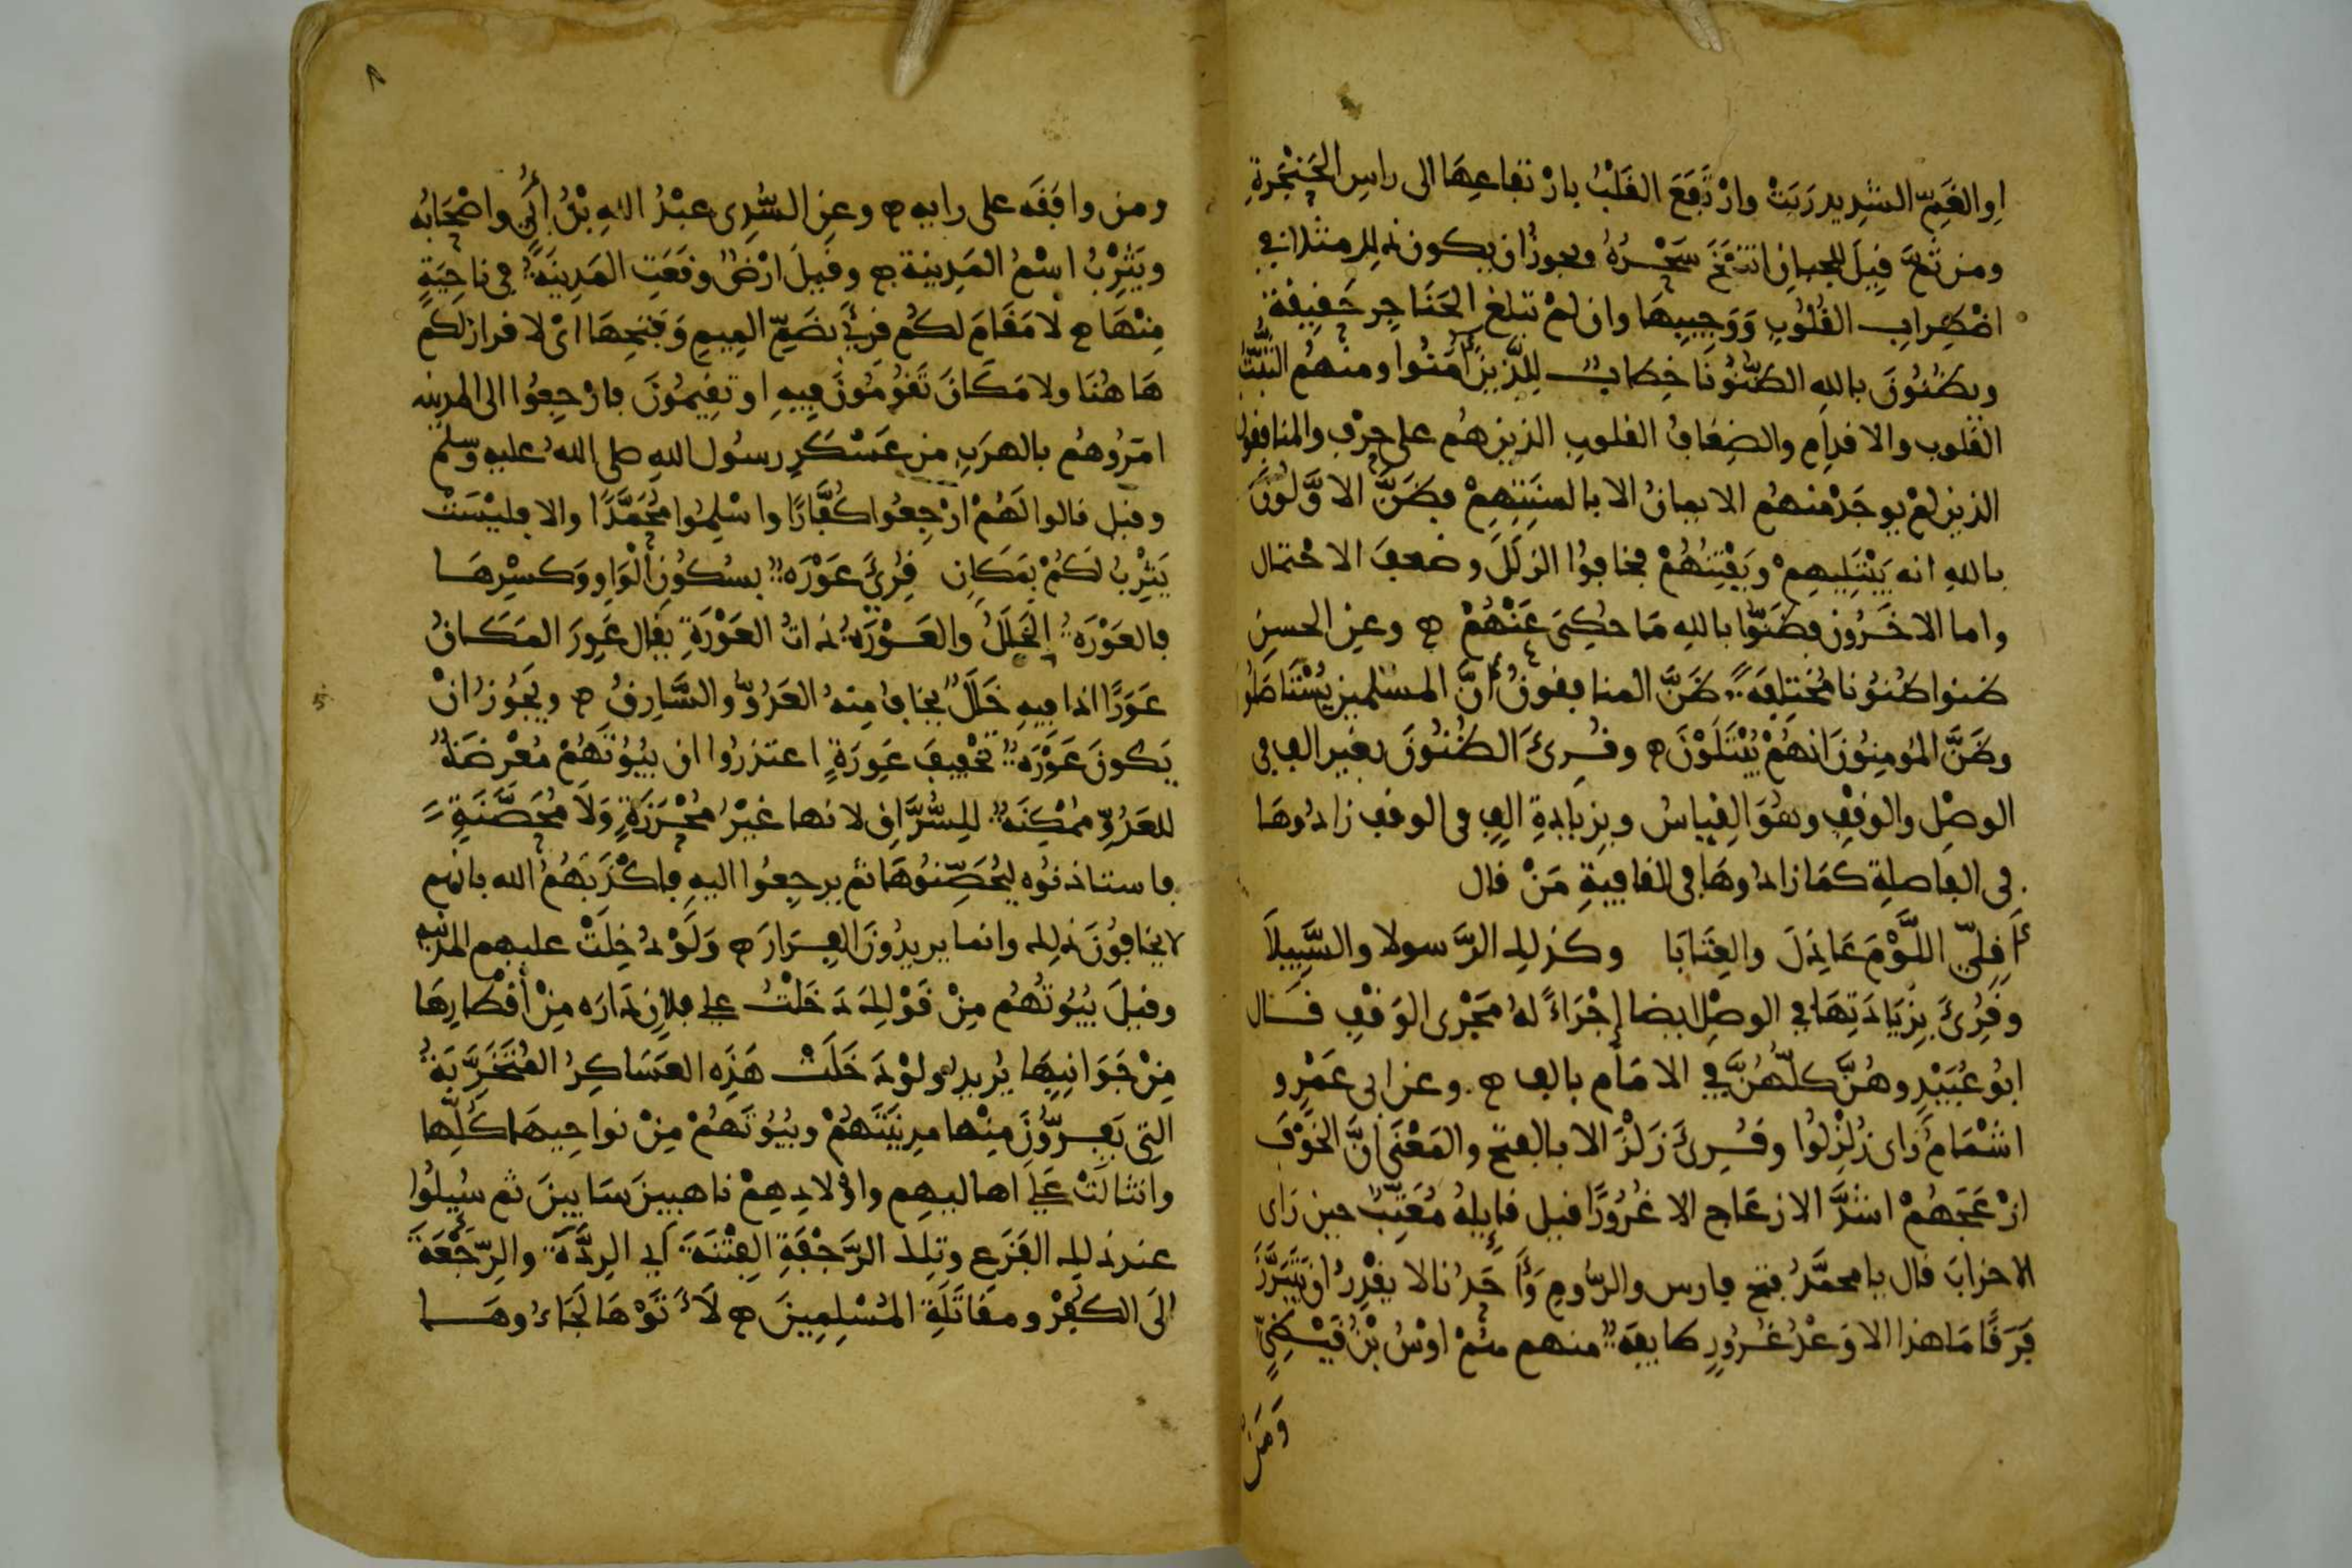 او الغَمّ الشديد رَبَتْ وارْتَفَعَ القَلْبُ بارْتفاعِهَا الى راسِ الحَنْجَرةِ
ومن ثَمَّ قِيلَ للجبانِ انتَفَخَ سَحْرُهُ ويجوزُ ان يكون ذلك مثلا في
اضْطِرابِ القُلُوبِ وَوَجِيبِهَا وان لمْ تبلغ الحَنَاجِر حَقِيقَة
وتظُنُّونَ بالله الظُّنُونَا خِطابٌ لِلَّذِينَ أَمَنُوا ومنهُم الثُّبَّتُ
القُلوب والاقدامِ والضِعَافُ القلوبِ الذين هُم على حرْفٍ والمنافقون
الذين لمْ يوجَدْ منهُم الايمانُ الا بالسنَتِهِمْ فظَنَّ الاوَّلُونَ
بالله انه يَبْتَلِيهِمْ وَيَفْتِنُهُمْ فخافوُا الزلَلَ وضعفَ الاحْتمال
واما الاخَرُون فظَنّوا بالله مَا حُكِىَ عَنْهُمْ ۞ وعن الحسنِ
ظنوا ظُنُونا مُخْتَلِفَةً ظَنَّ المنافقونُ أَنَّ المسْلمين يُسْتَاصَلُو
وظَنَّ المُومِنُونَ انهُمْ يُبْتَلَوْنَ ۞ وقُرِىَٔ الظُنُونَ بغيرِ الف في
الوصْلِ والوقْفِ وهُوَ القِيَاسُ وبِزيَادةِ الفٍ فى الوقفِ زادُوهَا
فى الفاصلةِ كمَا زادُوهَا فى القافيةِ مَنْ قال
أَقِلِّي اللَّوْمَ عَاذِلَ والعِتَابَا وكذلك الرَّسولا والسَّبِيلاَ
وقُرِئَ بِزِيَادَتِهَا في الوصْلِ ايضا إجْرَاءً لهُ مَجْرى الوَقْفِ قال
ابُو عُبَيْدٍ وهُنَّ كلُّهُنَّ في الامَامِ بالف ۞ وعن ابى عَمْرٍو
اشْمَامُ زَاى زُلْزِلُوا وقُرِئَ زَلْزَالا بالفتح والمَعْنَى أَنَّ الخَوْفَ
ازْعَجَهُمْ اشَدَّ الازعَاج الا غُرُورًا قيل قايِلهُ مُعَتِّبٌ حين رَاى
الاحزابَ قال يا محمَّدُ فتح فارس والرُّومِ وَأَحَدُنا لا يقْدِرُ ان يَتَبَرَّزَ
فَرَقًا مَا هذا الا وَعْدُ غُرُورٍ طايفَةٌ منهم همْ اوْسُ بْنُ قَيْظِيٍّ
وَمَن
٨
ومن وافَقَه على رايه ۞ وعن السُّدى عبْدُ اللهِ بْنُ أُبَيٍّ واصْحَابُه
ويَثْرِبُ اسْمُ المَدِينة ۞ وقيلَ ارْضٌ وقعَتِ المَدِينَةُ في ناحِيَةٍ
مِنْهَا ۞ لا مَقَامَ لكُم قرِئَ بضَمِّ المِيمِ وَفَتْحِهَا اىْ لا قرارَ لكُم
هَاهُنَا ولا مَكَانَ تَقُومُونَ فِيهِ اوتقِيمُونَ فارْجِعُوا الى المدينه
امَرُوهُم بالهرَبِ من عَسْكَرِ رسُول اللهِ صلى اللهُ عليهِ وسلم
وقيل قالوا لَهُمْ ارْجِعُوا كُفَّارًا واسْلِمُوا مُحَمَّدًا والا فليْسَتْ
يَثْرِبُ لَكُمْ بِمَكَانٍ قُرِئَ عَوْرَةٌ بسُكُونِ الْوَاوِ وَكَسْرِهَا
فالعَوْرَةُ الخَلَلُ والعَوْرَةُ ذاتُ العَوْرَةِ يقال عَوِرَ المَكَانُ
عَوَرًا اذا فِيهِ خَلَلٌ يخافُ مِنهُ العَدُوُّ والسَّارِقُ ۞ ويَجُوزُ انْ
يَكونَ عَوْرَةٌ تخْفِيفَ عَوِرَةٍ اعتذرُوا ان بُيُوتَهُمْ مُعْرضَةٌ
للعَدُوِّ مُمْكِنَةٌ لِلسُّرَّاقِ لانها غيْرُ مُحْرَزَةٍ وَلاَ مُحَصَّنَةٍ
فاستاذنوُه ليُحَصِّنُوهَا ثم يرجِعُوا اليهِ فاكْذَبَهُمُ الله بانهم
لا يخافُونَ ذلك وانما يريدُونَ الفِرَارَ ۞ وَلَوْ دُخِلَتْ عليهم المدينه
وقيلَ بُيُوتُهُم مِنْ قَوْلِكَ دَخَلْتُ على فلانٍ دَارَه مِنْ أَقْطارِهَا
مِنْ جَوَانِبِهَا يُريدُ ولوْ دَخَلَتْ هَذِه العَسَاكِرُ المُتَحَزِّبَةُ
التِى يَفِرُّونَ مِنْها مدِينَتَهُمْ وبُيُوتَهُمْ مِنْ نواحِيهَا كُلِّها
وانثالَتْ عَلَى اهاليهِم واوْلادِهِمْ ناهِبينَ سَابِينَ ثم سُيِلُوا
عند ذلك الفَزَع وتِلكَ الرَّجْفَةِ الفِتْنَةَ أي الرِدَّةَ والرَّجْعَةَ
الَى الكُفِرْ ومقَاتَلَةِ المُسْلِمِينَ ۞ لأَتَوْهَا لَجَاءُوهَا